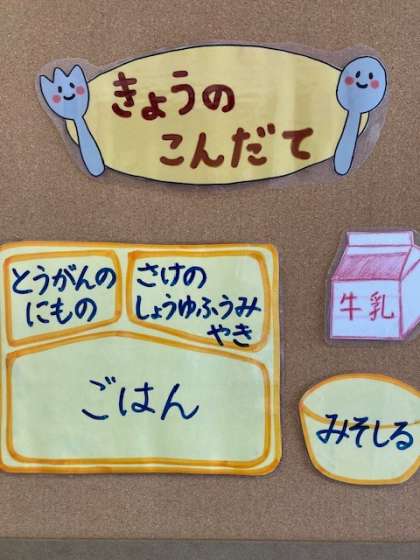 きょうの
こんだて
とうがんの
にもの
さけの
しょうゆふうみ
やき
ごはん
牛乳
みそしる